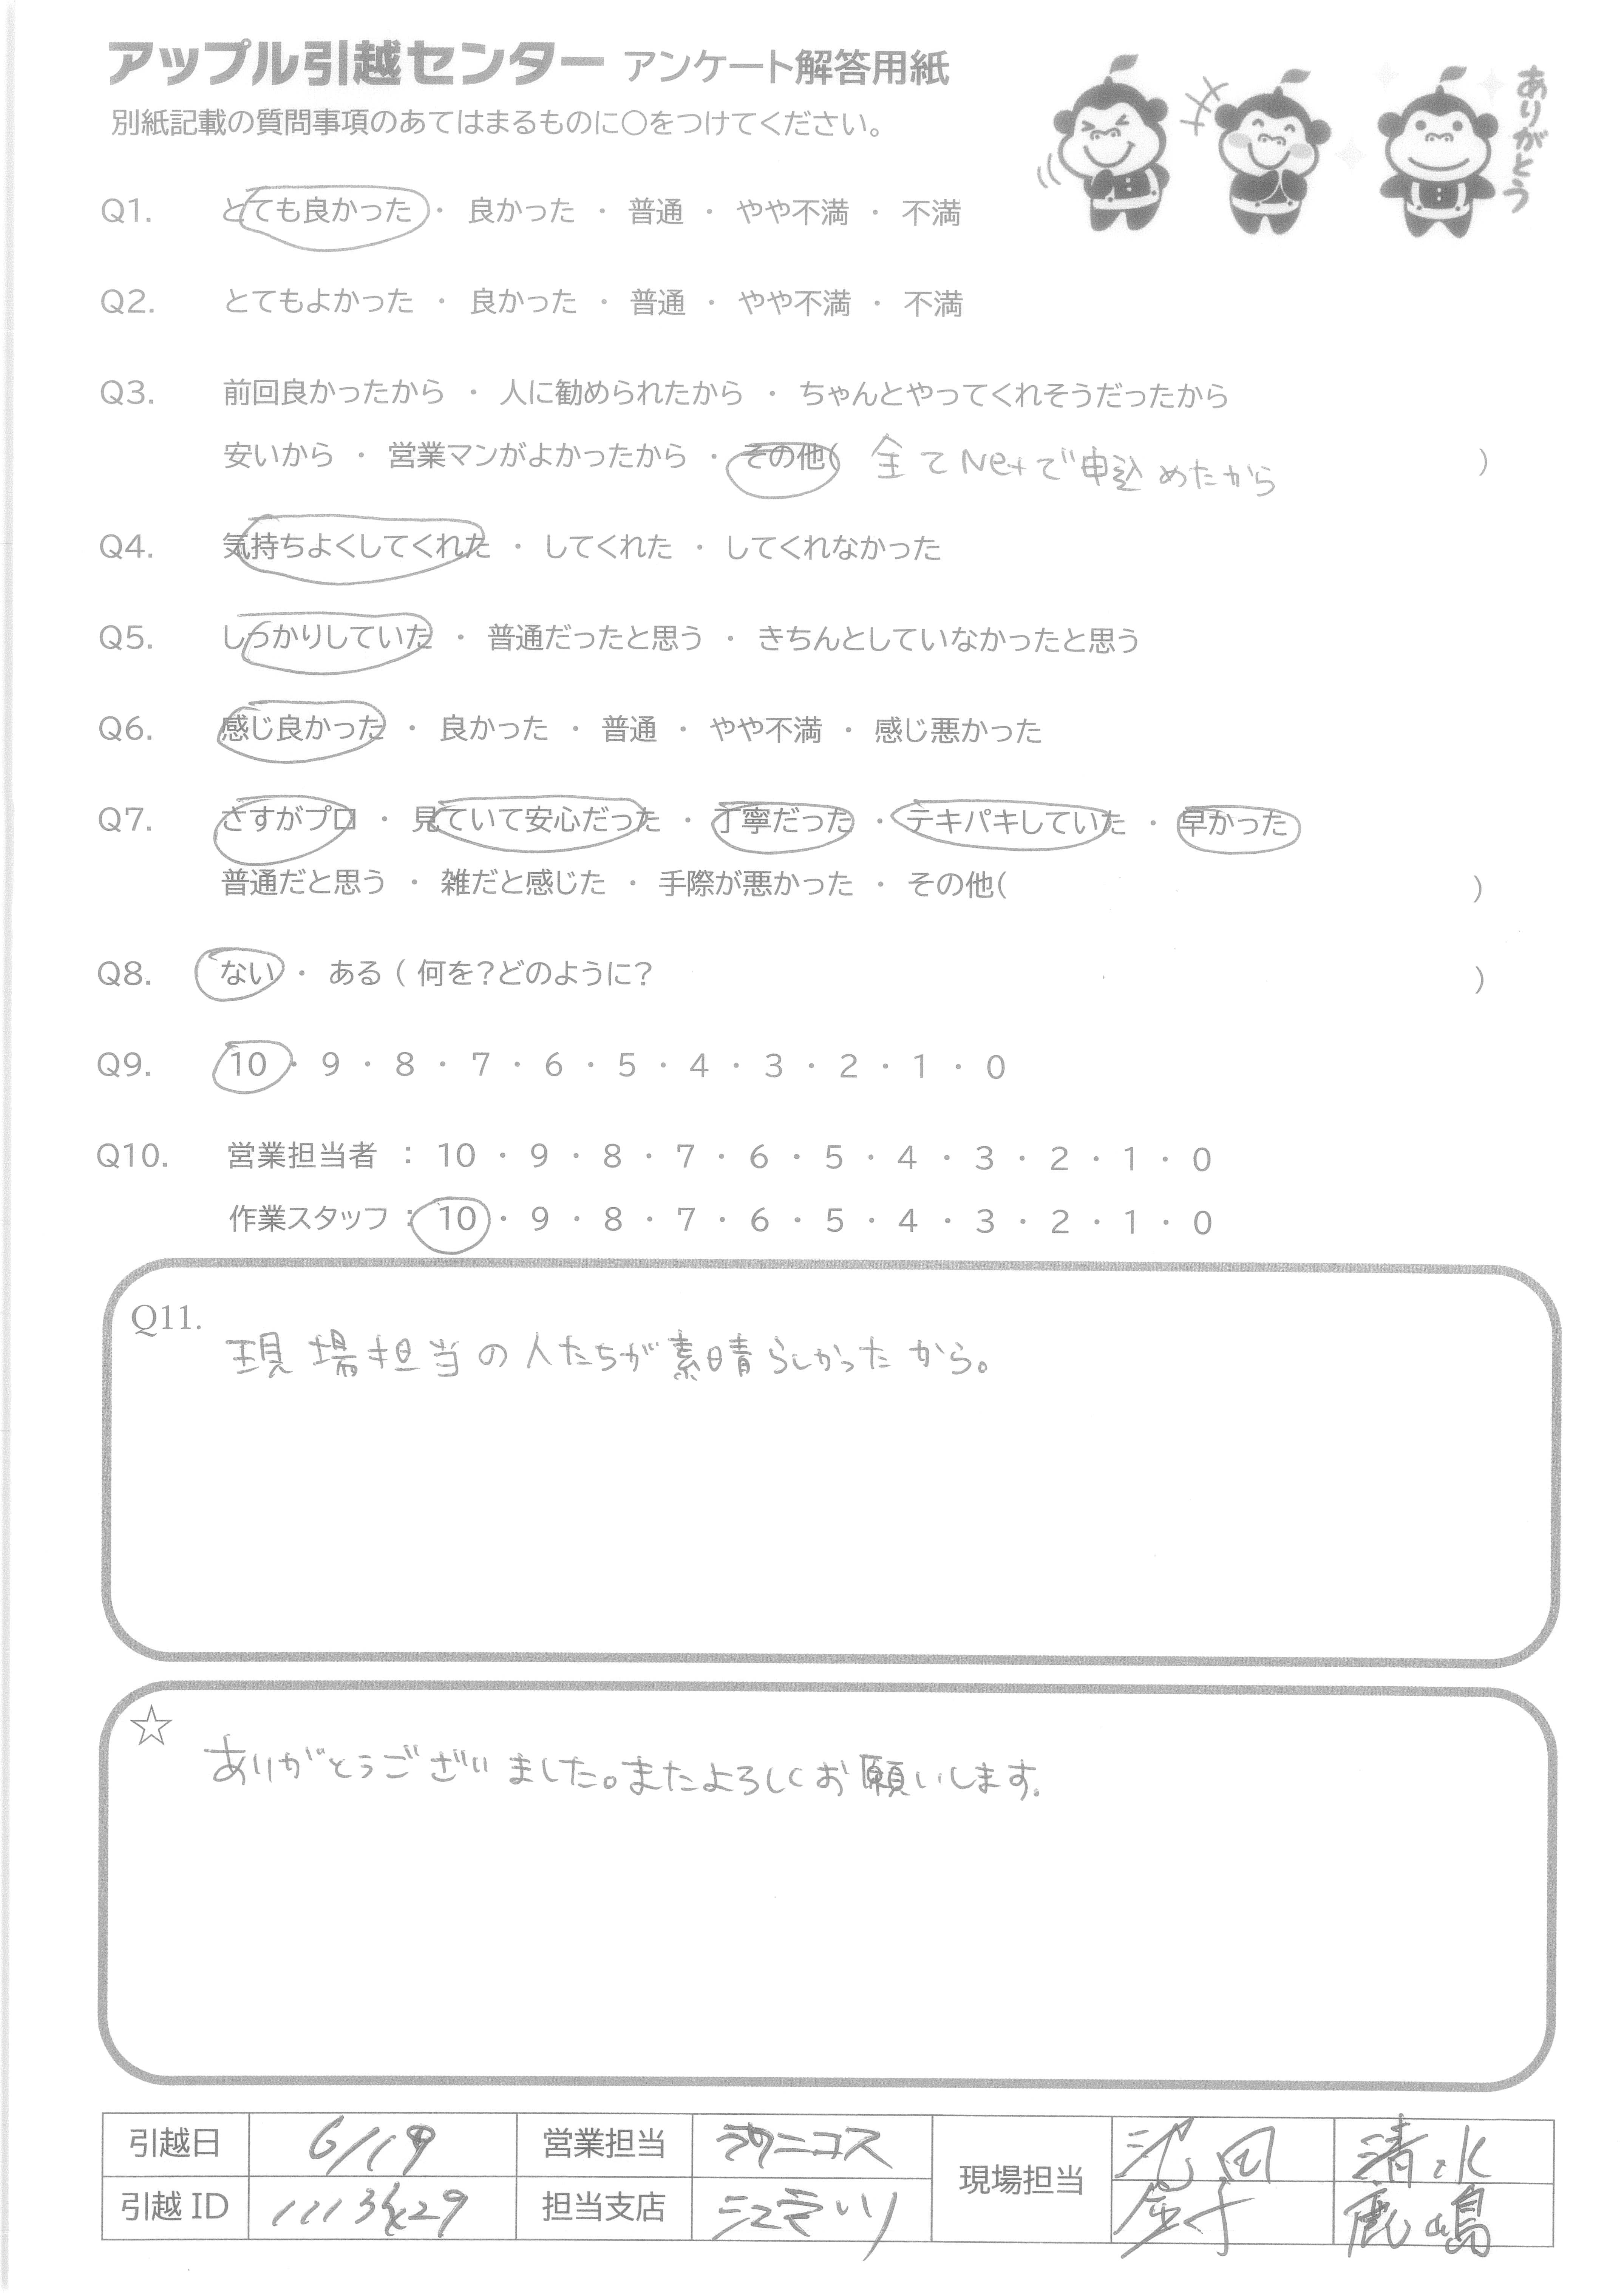 アップル引越センター アンケート解答用紙
別紙記載の質問事項のあてはまるものに○をつけてください。
ありがとう
Q1. とても良かった ・ 良かった ・ 普通 ・ やや不満 ・ 不満
Q2. とてもよかった ・ 良かった ・ 普通 ・ やや不満 ・ 不満
Q3. 前回良かったから ・ 人に勧められたから ・ ちゃんとやってくれそうだったから
安いから ・ 営業マンがよかったから ・ その他( 全てNetで申込めたから )
Q4. 気持ちよくしてくれた ・ してくれた ・ してくれなかった
Q5. しっかりしていた ・ 普通だったと思う ・ きちんとしていなかったと思う
Q6. 感じ良かった ・ 良かった ・ 普通 ・ やや不満 ・ 感じ悪かった
Q7. さすがプロ ・ 見ていて安心だった ・ 丁寧だった ・ テキパキしていた ・ 早かった
普通だと思う ・ 雑だと感じた ・ 手際が悪かった ・ その他( )
Q8. ない ・ ある ( 何を?どのように? )
Q9. 10 ・ 9 ・ 8 ・ 7 ・ 6 ・ 5 ・ 4 ・ 3 ・ 2 ・ 1 ・ 0
Q10. 営業担当者 : 10 ・ 9 ・ 8 ・ 7 ・ 6 ・ 5 ・ 4 ・ 3 ・ 2 ・ 1 ・ 0
作業スタッフ : 10 ・ 9 ・ 8 ・ 7 ・ 6 ・ 5 ・ 4 ・ 3 ・ 2 ・ 1 ・ 0
Q11.
現場担当の人たちが素晴らしかったから。
☆
ありがとうございました。またよろしくお願いします。
引越日 6/19 営業担当 現場担当 沈田 清水
引越 ID 担当支店 江戸川 金子 鹿嶋